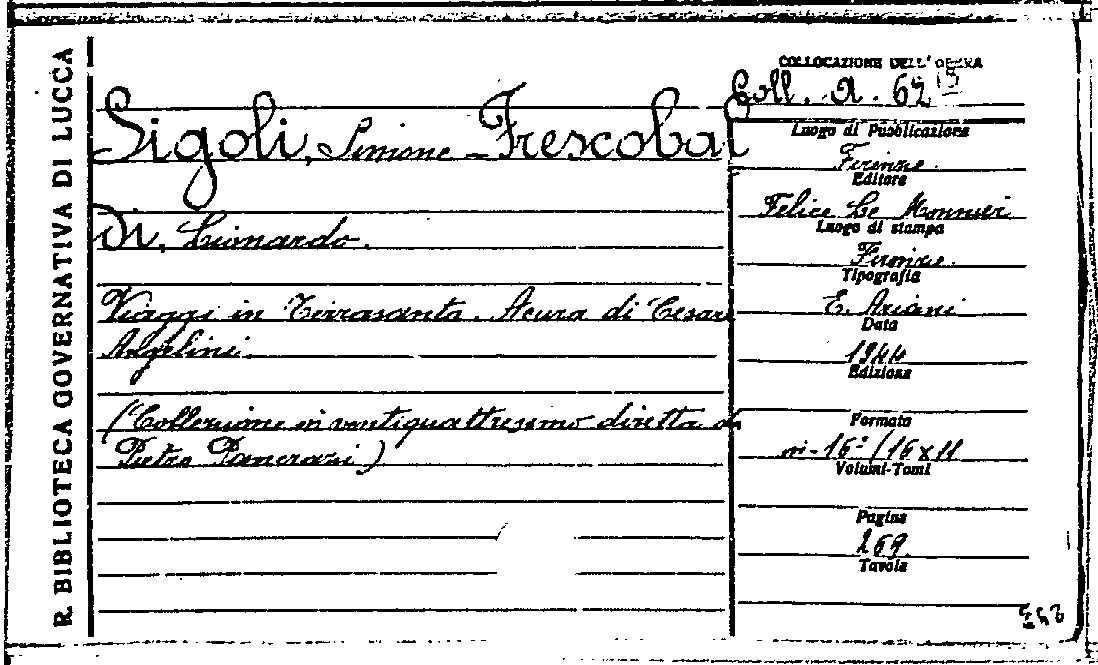 R. BIBLIOTECA GOVERNATIVA DI LUCCA
Sigoli, Simione - Frescobal
Di, Lionardo.
Viaggi in Terrasanta. A cura di Cesare
Angelini.
(Collezione in ventiquattresimo diretta da
Pietro Pancrazi)
COLLOCAZIONE DELL'OPERA
Coll. A. 62
Luogo di Pubblicazione
Firenze.
Editore
Felice Le Monnier
Luogo di stampa
Firenze.
Tipografia
E. Ariani
Data
1944
Edizione
Formato
in-16° (16x11
Volumi-Tomi
Pagine
269
Tavole